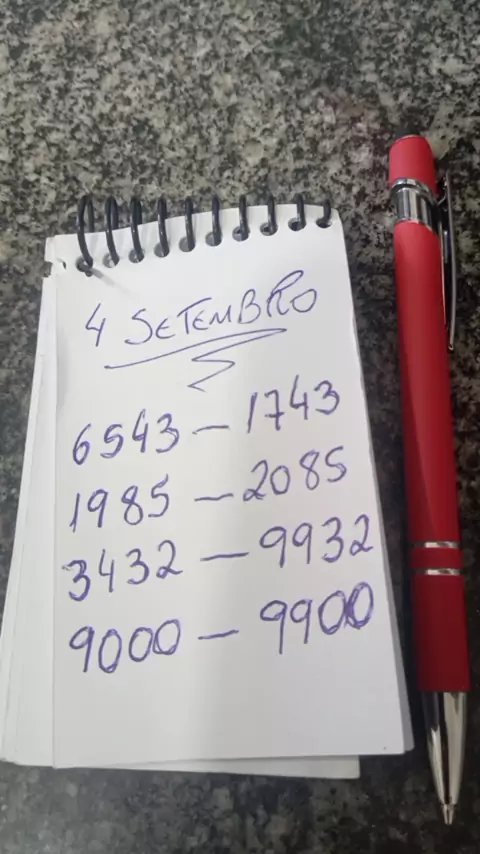 4 SETEMBRO
6543 - 1743
1985 - 2085
3432 - 9932
9000 - 9900